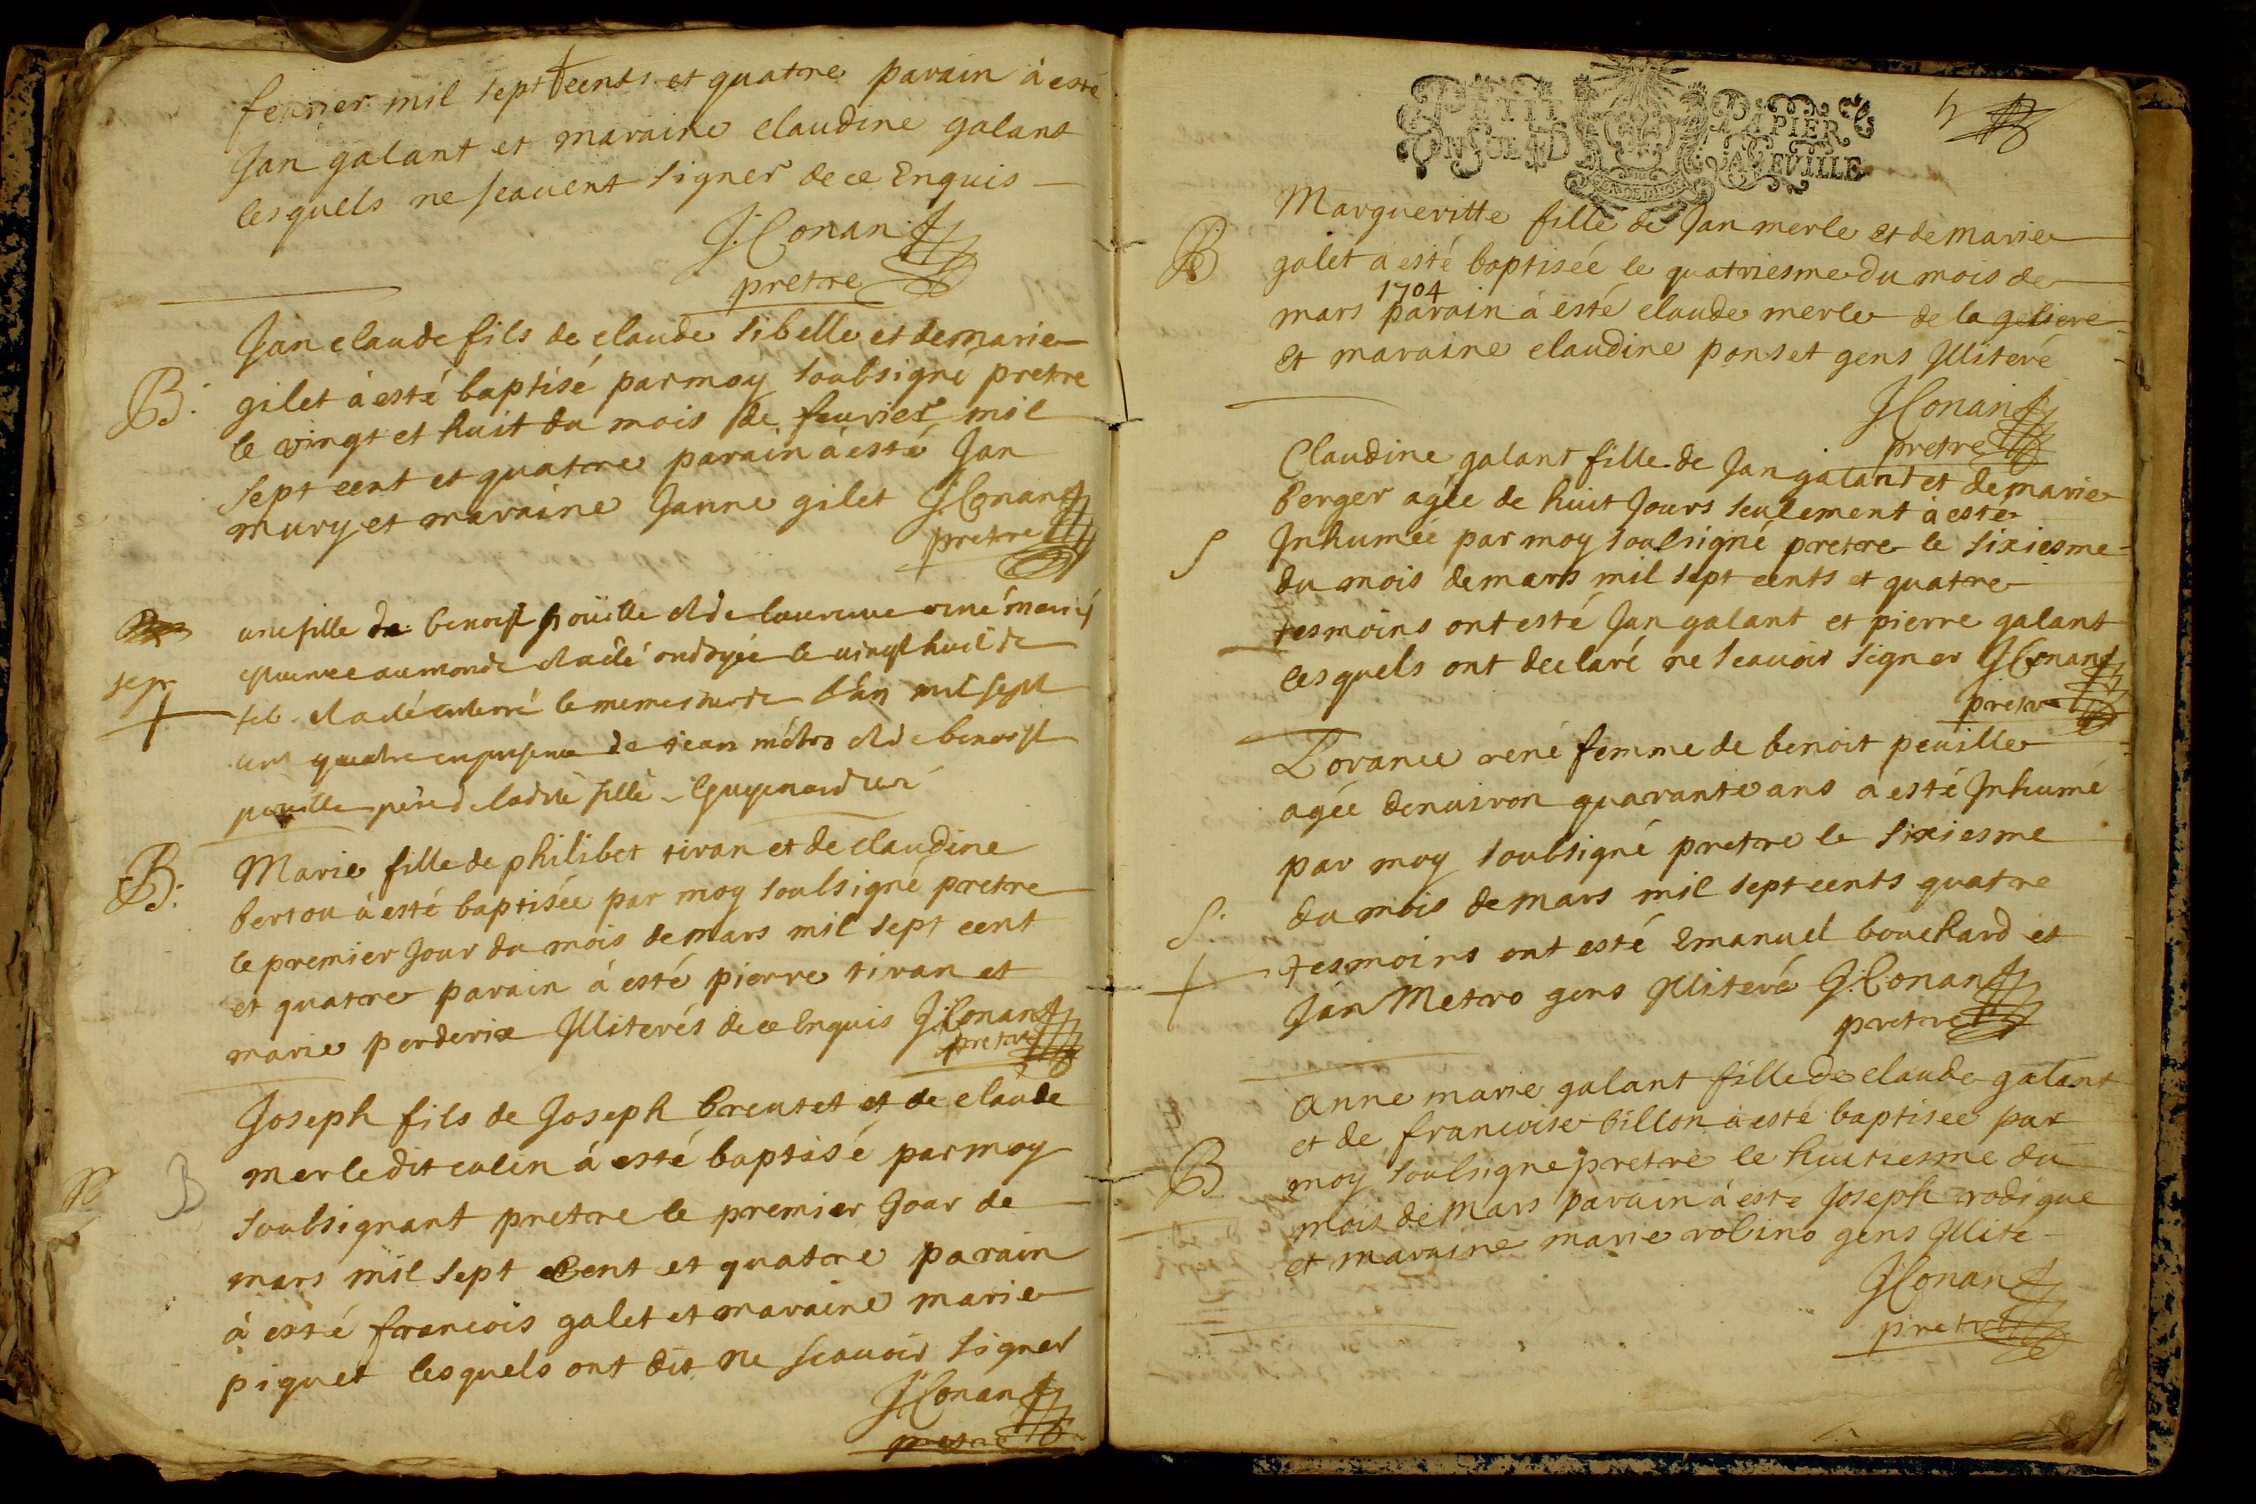 feurier mil sept cents et quatre parain à esté
Jan galant et maraine claudine galant
lesquels ne scauent signer de ce Enquis
J. Conan
pretre
Jan claude fils de claude sibelle et de marie
B.
gilet à esté baptisé par moy soubsigné pretre
le vingt et huit du mois de feurier mil
sept cent et quatre parain à esté Jan
mury et maraine Janne gilet J. Conan
pretre
une fille de benoist et de laurence rené mariés
sep
est venue au monde et a été ondoyée le vingt huit de
feb. et a été enterré le meme l'an mil sept
cent quatre en presence de jean métro et de benoist
peuille père de ladite fille Guyenard curé
B.
Marie fille de philibet tiran et de claudine
bertou à esté baptisée par moy soubsigné pretre
le premier Jour du mois de mars mil sept cent
et quatre parain à esté pierre tiran et
marie perderix Illiterés de ce Enquis J. Conan
pretre
Joseph fils de Joseph breutet et de claude
merle dit colin à esté baptisé par moy
B
soubsignant pretre le premier Jour de
mars mil sept cent et quatre parain
à esté francois galet et maraine marie
piquet lesquels ont dit ne scauoir signer
J Conan
pretre
PETIT PAPIER
Margueritte fille de Jan merle et de marie
B
galet a esté baptisée le quatriesme du mois de
1704
mars parain à esté claude merle de la
et maraine claudine ponset gens Illiteré
J Conan
pretre
Claudine galant fille de Jan galant et de marie
berger agée de huit Jours seulement à esté
S
Inhumée par moy soubsigné pretre le sixiesme
du mois de mars mil sept cents et quatre
tesmoins ont esté Jan galant et pierre galant
lesquels ont declaré ne scauoir signer J Conan
pretre
Lorance rené femme de benoit peuille
agée denuiron quarante ans à esté Inhumé
par moy soubsigné pretre le sixiesme
S.
du mois de mars mil sept cents quatre
tesmoins ont esté Emanuel bouchard et
Jan Metro gens Illiteré J. Conan
pretre
Anne marie galant fille de claude galant
et de francoise billon à esté baptisée par
B
moy soubsigné pretre le huitiesme du
mois de Mars parain à esté Joseph rodigue
et maraine marie robino gens Illite
J Conan
pretre